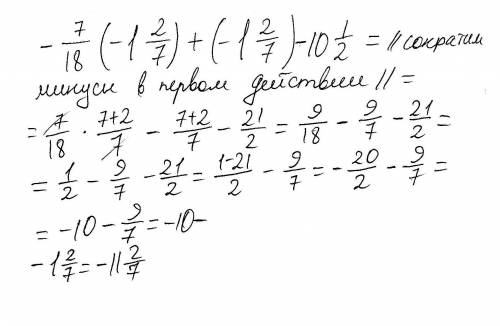 - 7/18 (-1 2/7) + (-1 2/7) - 10 1/2 = // сократим
минусы в первом действии // =
= 7/18 · (7+2)/7 - (7+2)/7 - 21/2 = 9/18 - 9/7 - 21/2 =
= 1/2 - 9/7 - 21/2 = (1-21)/2 - 9/7 = - 20/2 - 9/7 =
= -10 - 9/7 = -10 -
- 1 2/7 = -11 2/7